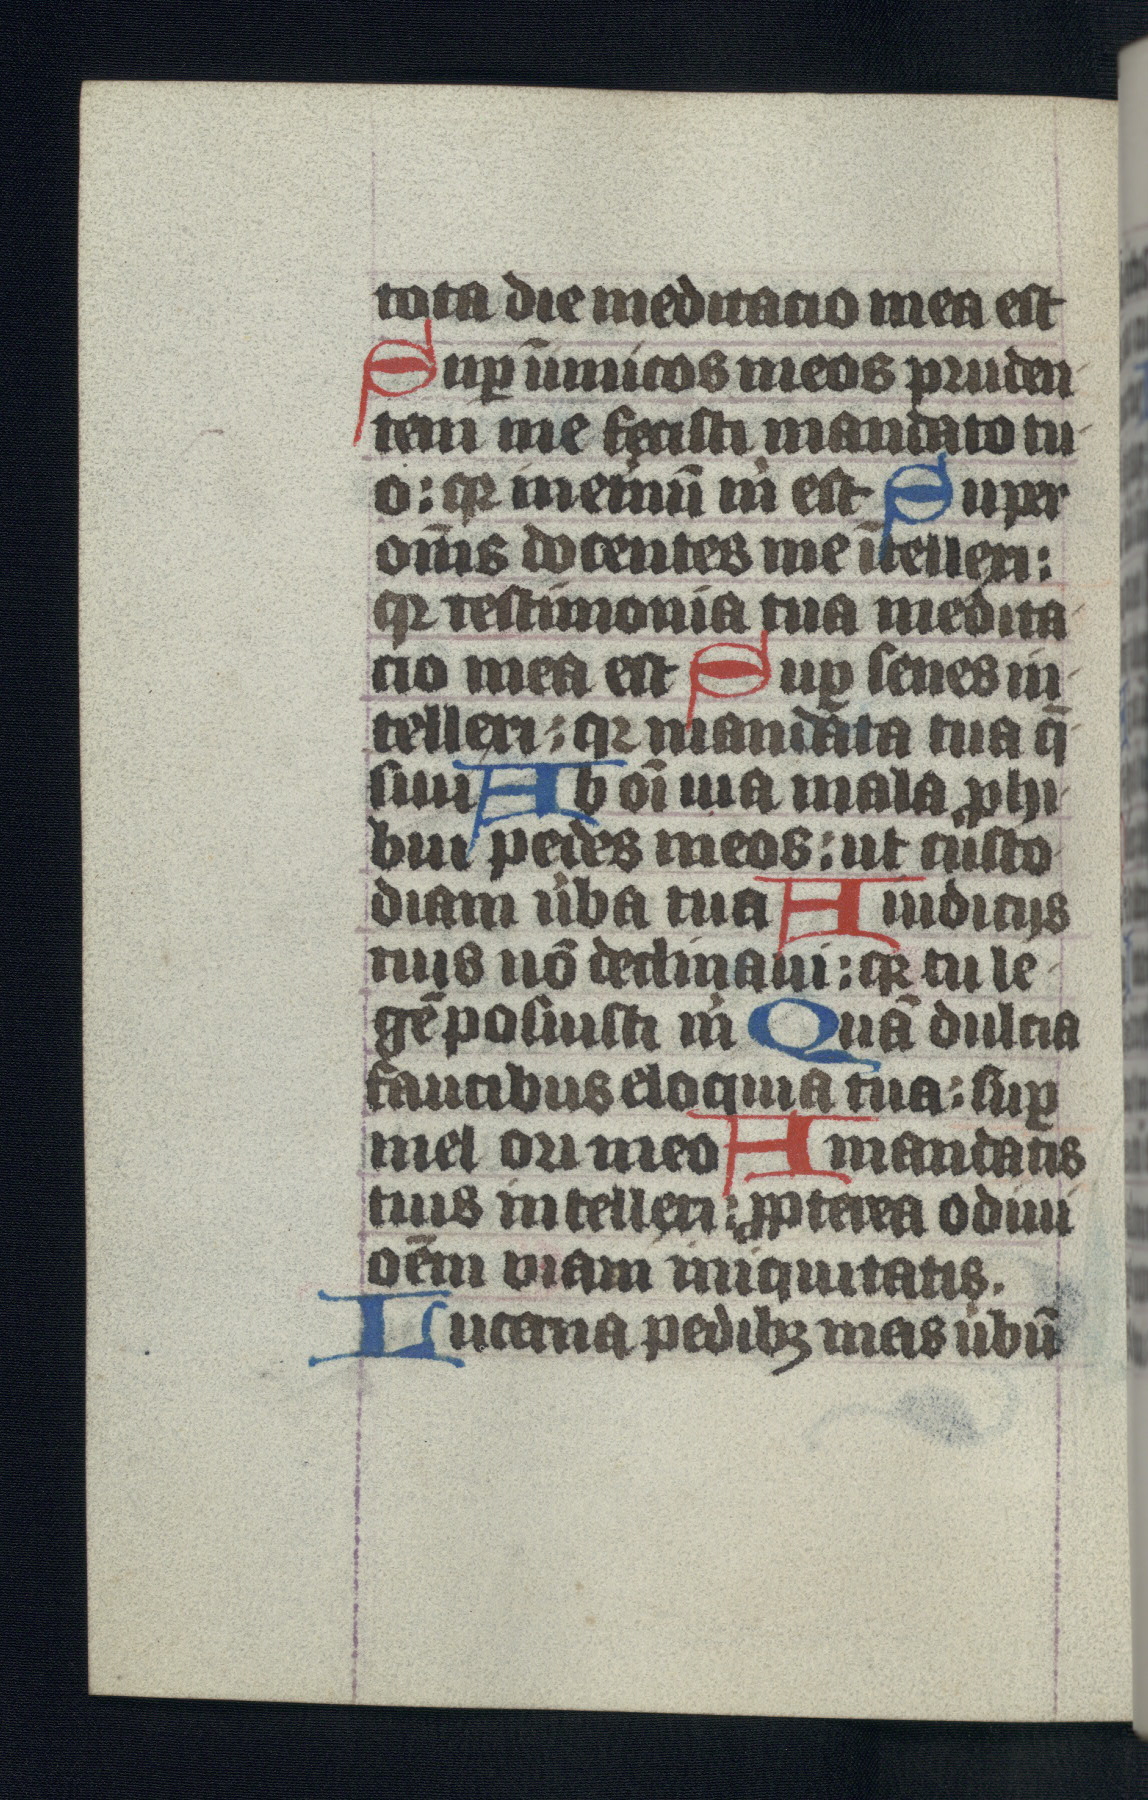 tota die meditacio mea est
Suꝑ īimicos meos pruden
tem me fecisti mandato tu
o: qꝛ inetnū ṁ est Super
om̄s docentes me ītellexi:
qꝛ testimonia tua medita
cio mea est Suꝑ senes in
tellexi: qꝛ mandata tua q̄
siui Ab oī uia mala ꝓhi
bui pedes meos: ut custo
diam u̇ba tua A iudicijs
tuis nō declinaui: qꝛ tu le
gē posuisti ṁ Quā dulcia
faucibus eloquia tua: suꝑ
mel ori meo A mandatis
tuis intellexi: ꝓpterea odiui
oēm uiam iniquitatis.
Lucerna pedibꝫ meis u̇bū